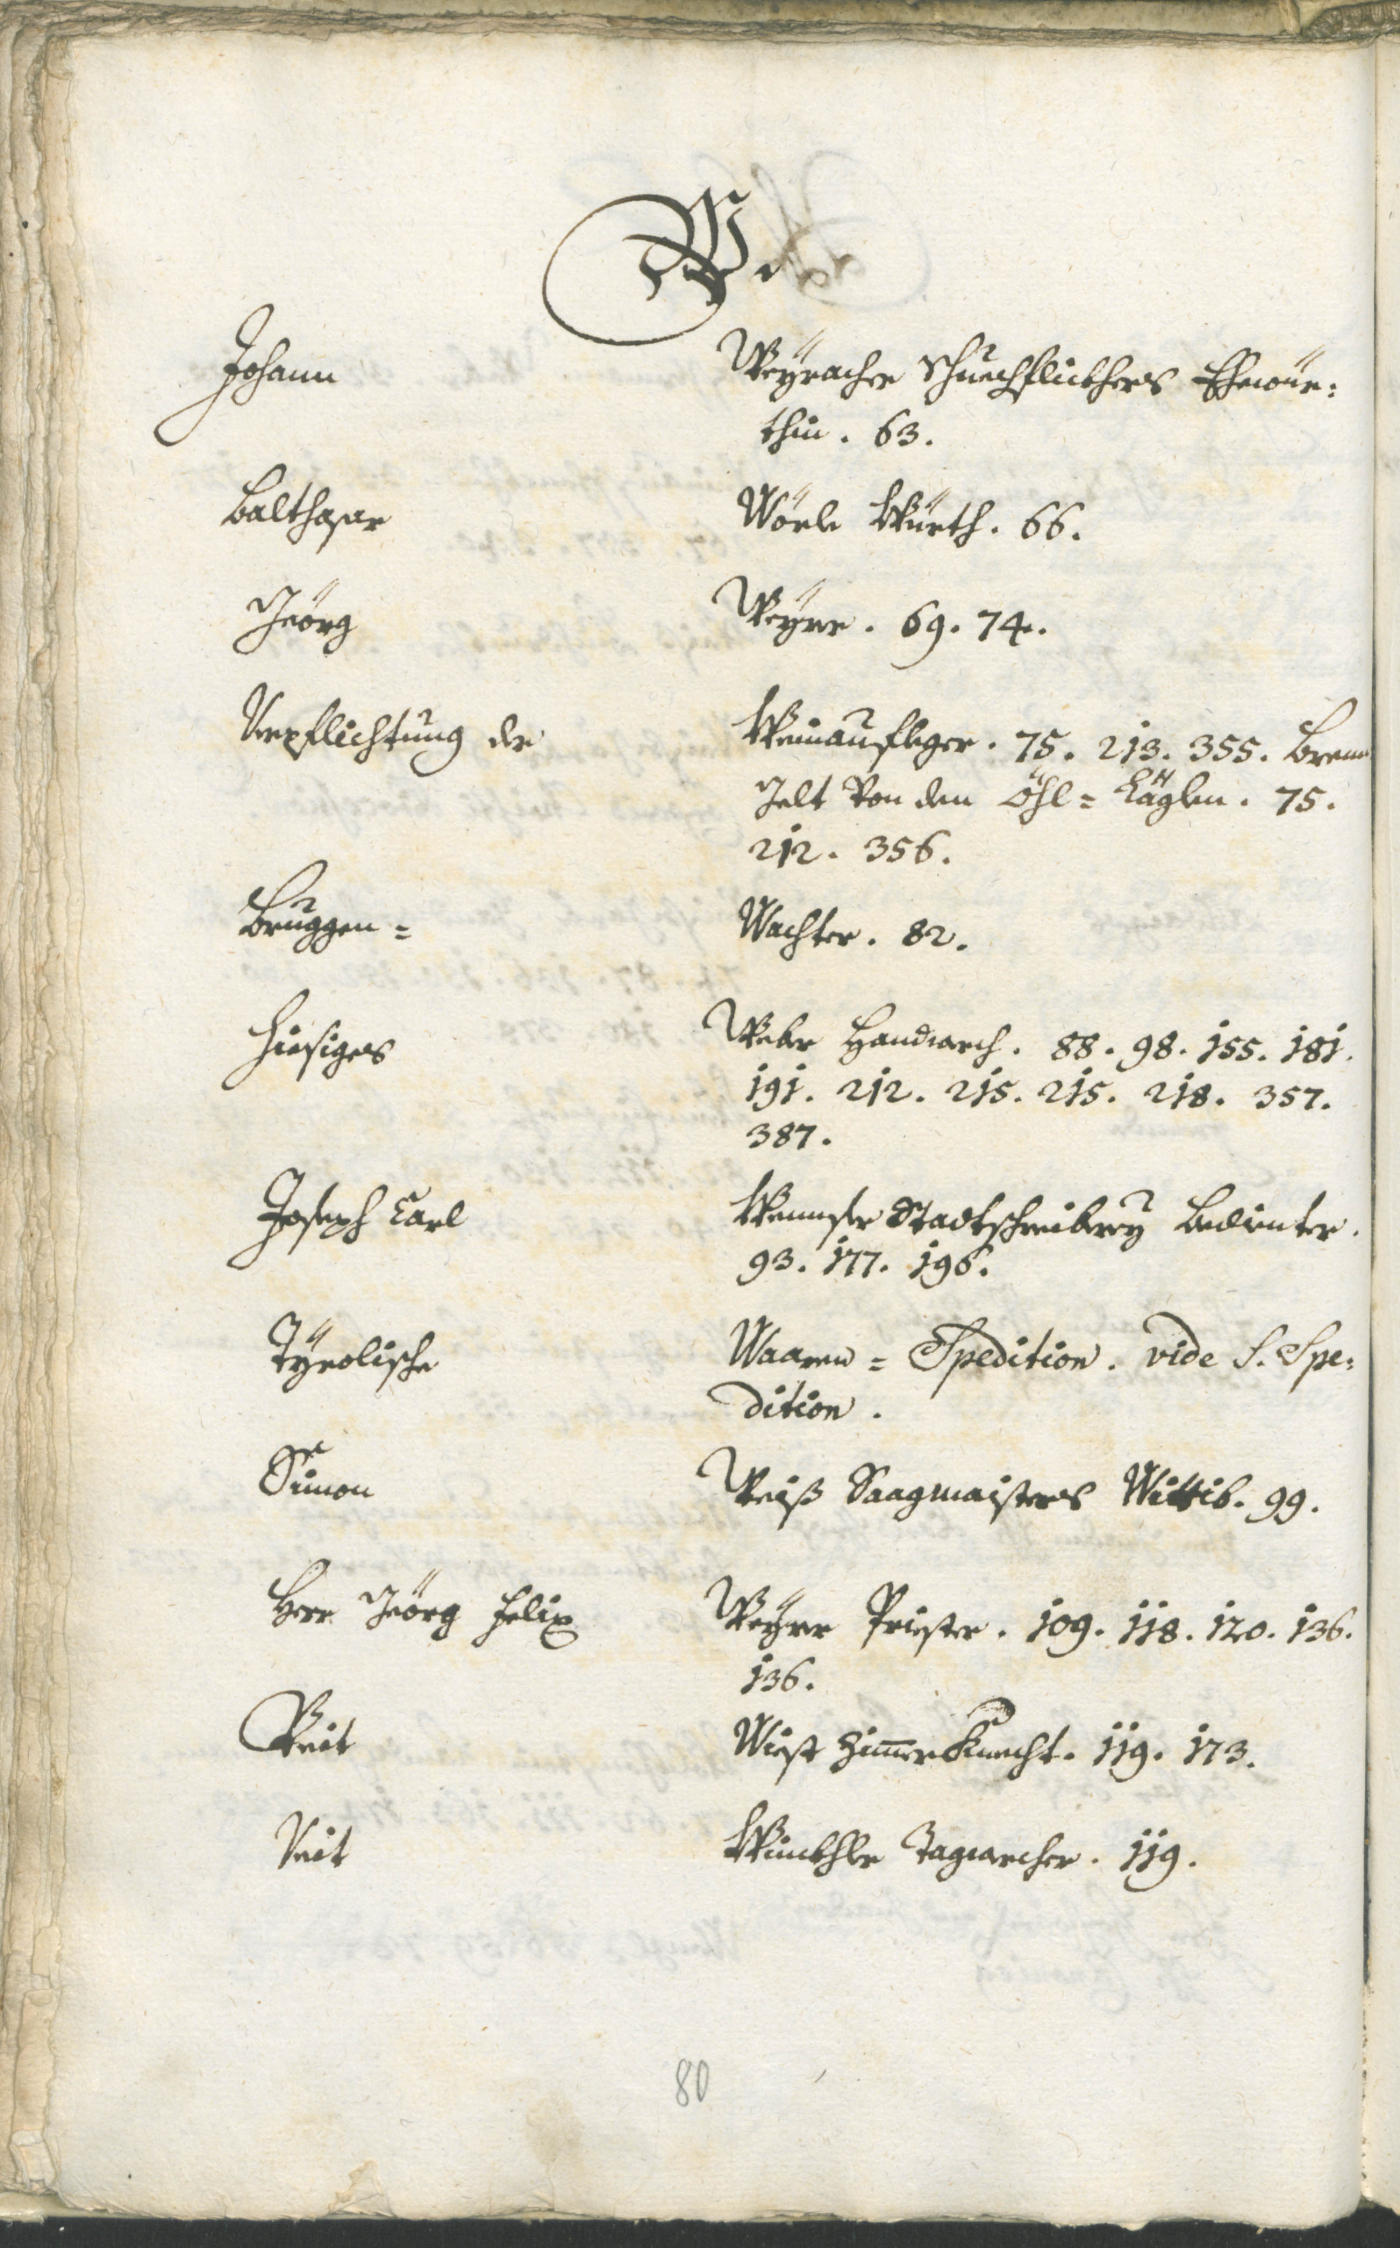 W.
Johann Weÿracher Schuechflickhers Ehewür=
thin. 63.
Balthasar Wörle Würth. 66.
Jeörg Weÿrr. 69. 74.
Verpflichtung der Weinaufleger. 75. 213. 355. Brenn
Gelt Von den Öhl= Läglen. 75.
212. 356.
Bruggen= Wachter. 82.
Hiesiges Weber Handwerch. 88. 98. 155. 181.
191. 212. 215. 215. 218. 357.
387.
Joseph Carl Stadtschreiberey Bedienter.
93. 177. 196.
Tÿrolische Waaren= Spedition. vide S. Spe=
dition.
Simon Weiß Saagmaisters Wittib. 99.
Herr Jeörg Felix Weÿrr Priester. 109. 118. 120. 136.
136.
Veit Wiest Zimerknecht. 119. 173.
Veit Winckhler Tagwercher. 119.
80